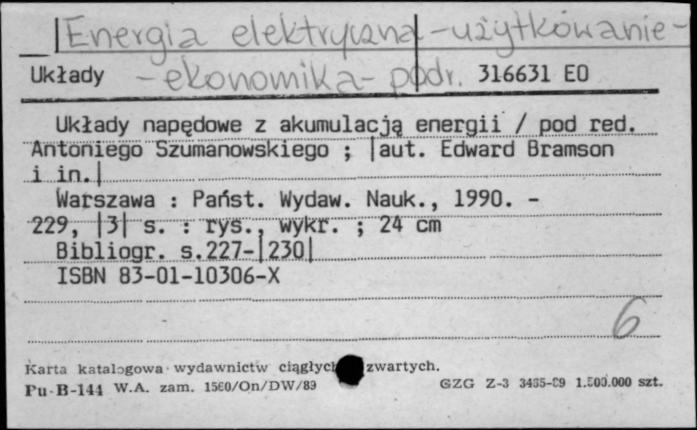 Energia elektryczna - użytkowanie -
Układy - ekonomika - podr. 316631 EO
Układy napędowe z akumulacją energii / pod red.
Antoniego Szumanowskiego ; |aut. Edward Bramson
i in.|
Warszawa : Państ. Wydaw. Nauk., 1990. -
229, |3| s. : rys., wykr. ; 24 cm
Bibliogr. s.227-|230|
ISBN 83-01-10306-X
6
Karta katalogowa wydawnictw ciągłych zwartych.
Pu-B-144 W.A. zam. 1560/On/DW/89 GZG Z-3 3435-89 1.500.000 szt.